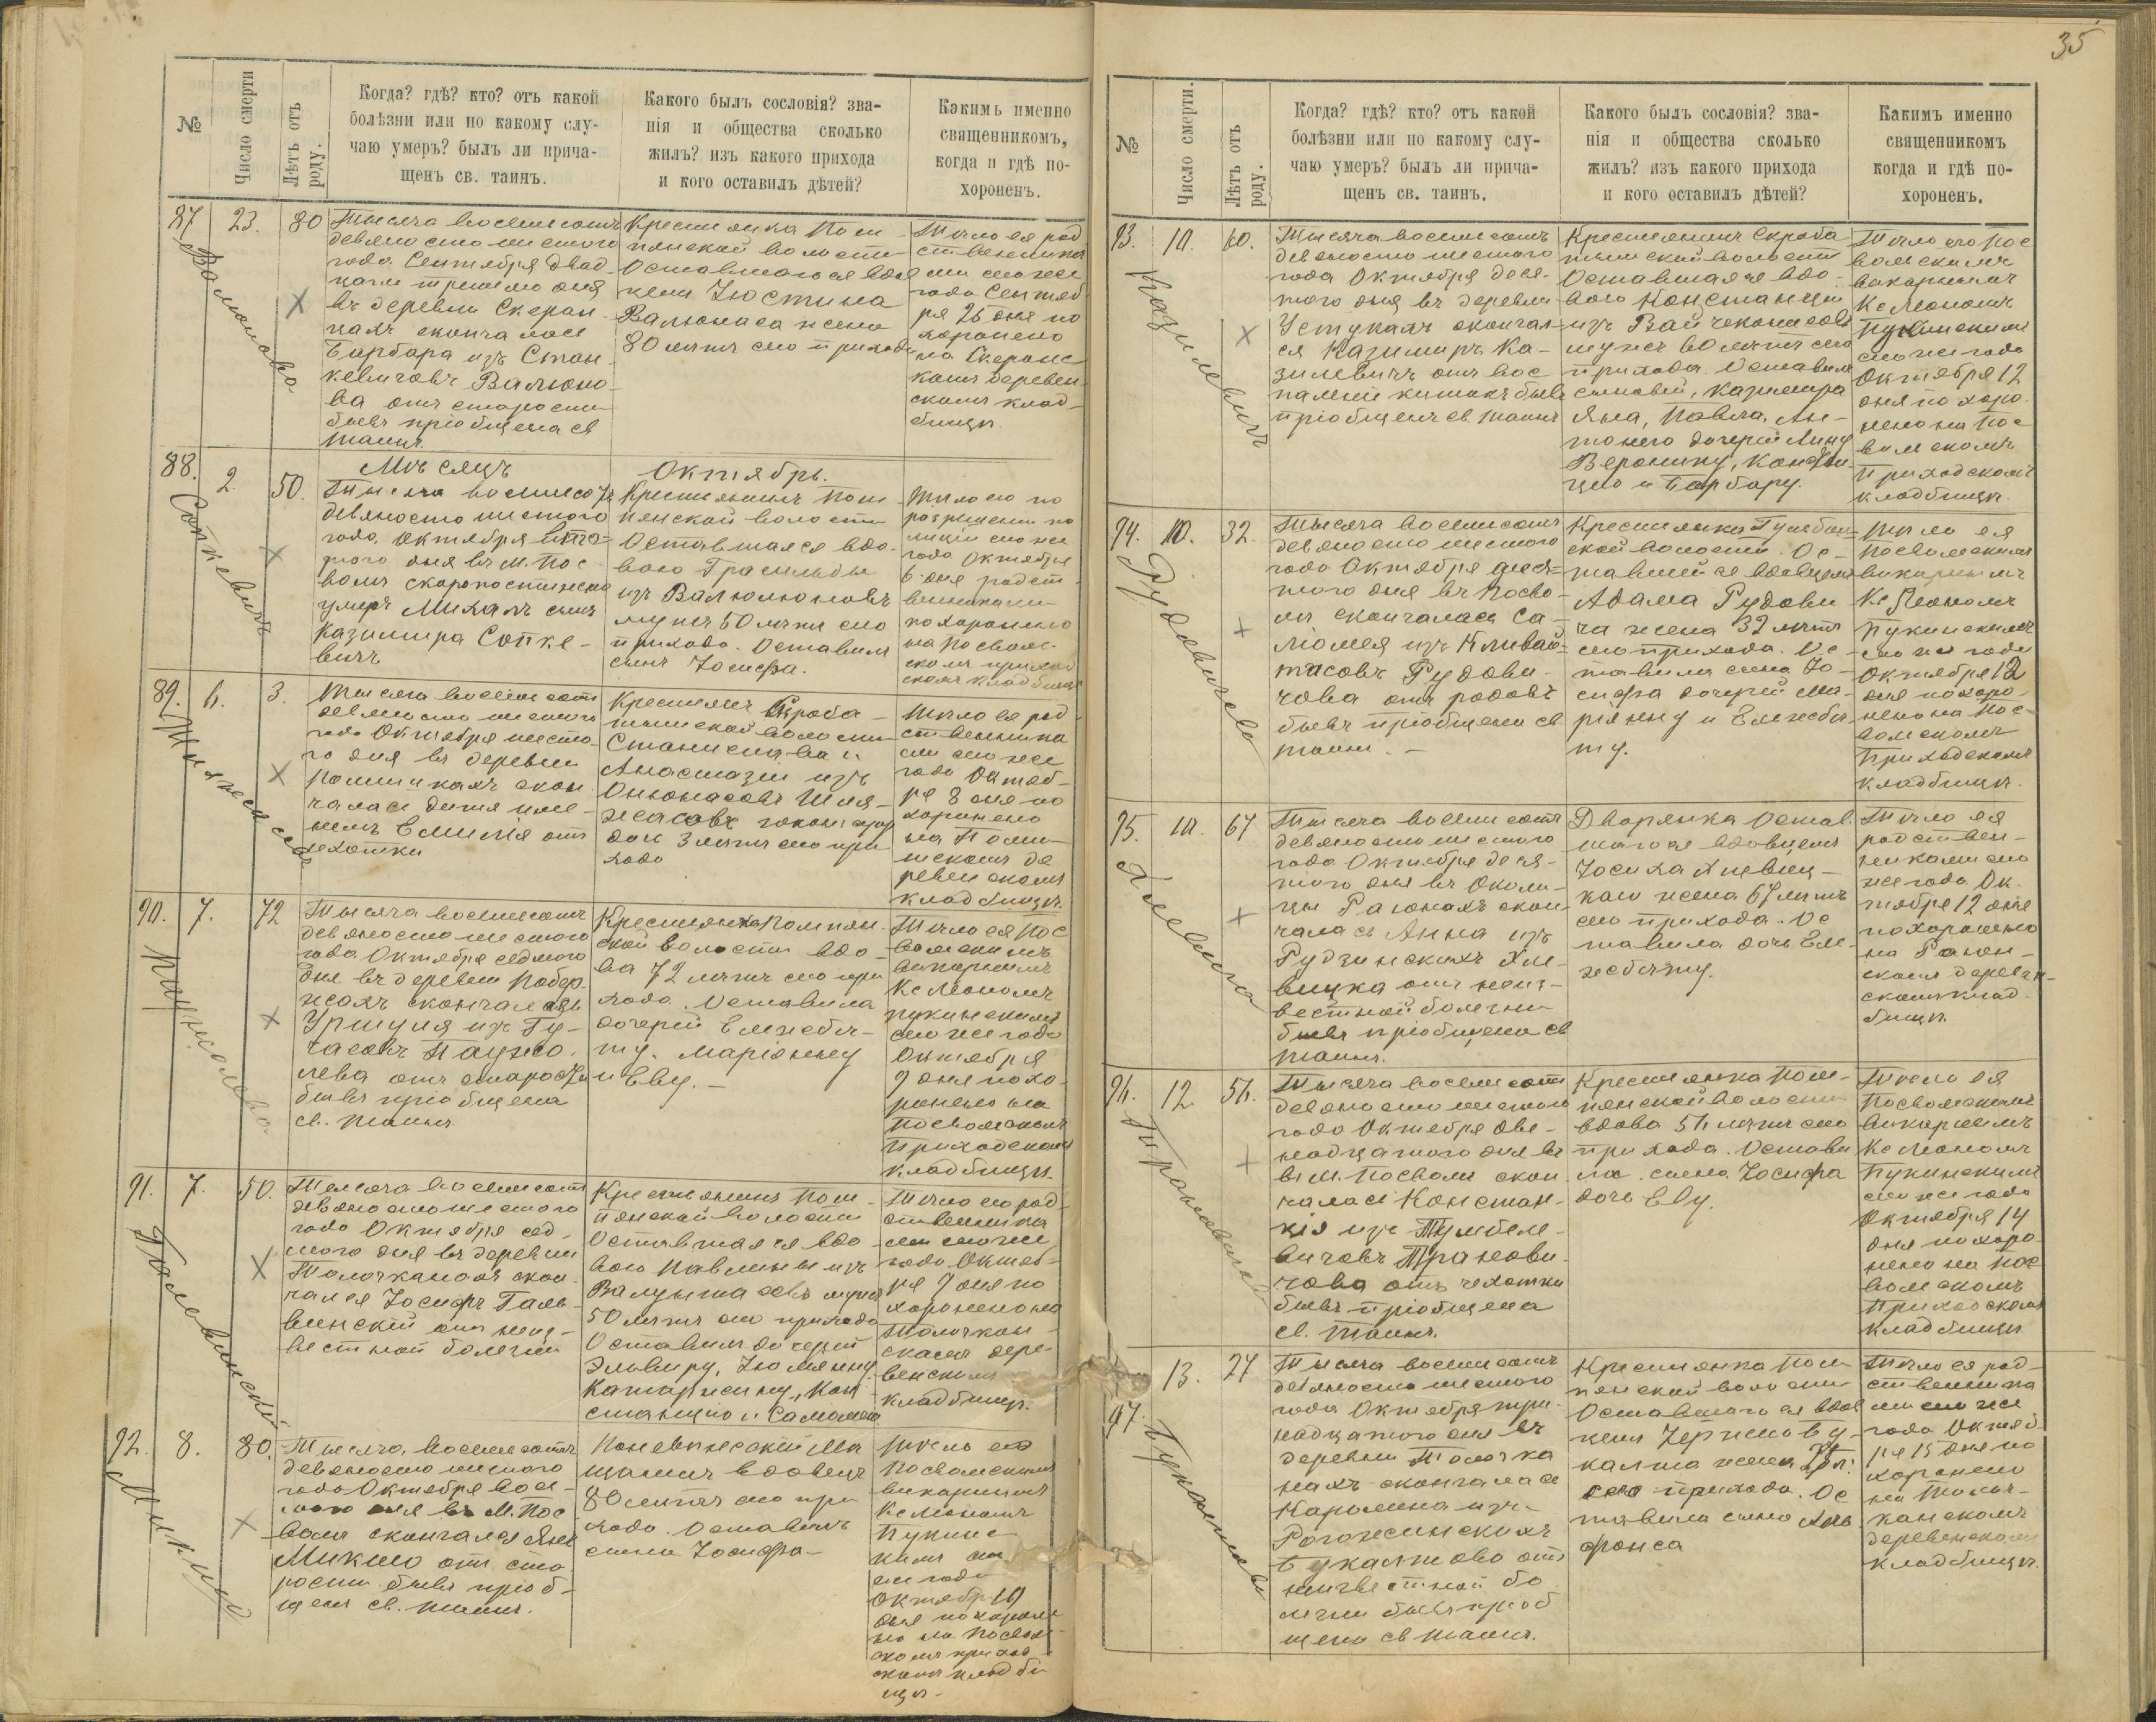 35
№
Число смерти
Лѣтъ отъ роду.
Когда? гдѣ? кто? отъ какой
болѣзни или по какому слу-
чаю умеръ? былъ ли прича-
щенъ св. таинъ.
Какого былъ сословія? зва-
нія и общества сколько
жилъ? изъ какого прихода
и кого оставилъ дѣтей?
Какимъ именно
священникомъ,
когда и гдѣ по-
хороненъ.
87
23.
80
Тысяча восемьсотъ
девяносто шестого
года Сентября двад-
цать третьяго дня
въ деревни Скеран-
цахъ скончалась
Барбара изъ Стан-
кевичовъ Валюно-
ва отъ старости
бывъ пріобщена св
таинъ.
Крестьянка Пом-
пянской волости
Оставшагося вдов
цемъ Юстина
Валюнаса жена
80 лѣтъ сего прихода
Тѣло ея род
ственника
ми сего же
года Сентяб
ря 26 дня по
хоронено
на Скеранс
комъ деревен
скомъ клад-
бищѣ.
Мѣсяцъ
Октябрь.
88.
2.
50.
Сопкевичъ
Тысяча восемьсотъ
девяносто шестого
года Октября вто-
рого дня въ м. Пос
воль скоропостижно
умеръ Михаилъ сынъ
Казимира Сопке-
вичъ
Крестьянинъ Пом
пянской волости
Оставшаяся вдо-
вою Грасильды
изъ Валюлюновъ
мужъ 50 лѣтъ сего
прихода. Оставилъ
сына Іосифа.
Тѣло его по
разрешени по
лиціи сего же
года Октября
6 дня родст
венниками
похоронено
на Посволь
скомъ приход
скомъ кладбищѣ
89.
6.
3.
Тысяча восемьсотъ
девяносто шестого
года Октября шесто-
го дня въ деревни
скон
чалась дитя име-
немъ Емилія отъ
чехотки
Крестьянъ Скроба-
тишской волости
Станислава и
Анастазіи изъ
законная
дочь 3 лѣтъ сего при
хода
Тѣло ея род
ственника
ми сего же
года Октяб-
ря 8 дня по
хоронено
на
де
ревенскомъ
кладбищѣ.
90.
7.
72
Тысяча восемьсотъ
девяносто шестого
года Октября седьмого
дня въ деревни Побер
жсахъ скончалась
Уршуля изъ Гу-
часовъ
лева отъ старости
бывъ пріобщена
св. таинъ
Крестьянка Помпян
ской волости вдо-
ва 72 лѣтъ сего при
хода. Оставила
дочерей Елжебѣ-
ту, Маріянну
и Еву.-
Тѣло ея Пос
вольскимъ
викарнымъ
Кс Леономъ
Пукинскимъ
сего же года
Октября
9 дня похо-
ронено на
Посвольскомъ
Приходскомъ
кладбищѣ.
91.
7.
50.
Тысяча восемьсотъ
девяносто шестого
года Октября сед-
мого дня въ деревни
Толочканахъ скон
чался Іосифъ Галь-
винскій отъ неиз-
вестной болезни
Крестьянинъ Пом-
пянской волости
Оставшаяся вдо-
вою Павлины изъ
мужъ
50 лѣтъ сего прихода
Оставилъ дочерей
Эльвиру, Юліянну,
Катаржину, Кон-
станцію и Саломею.
Тѣло его род-
ственника
ми сего же
года Октяб-
ря 9 дня по
хоронено на
Толочкан-
скомъ дере-
венскомъ
кладбищѣ.
92.
8.
80.
Микшо
Тысяча восемьсотъ
девяносто шестого
года Октября вось-
мого дня въ М. Пос
воль скончался Янъ
Микшо отъ ста-
рости бывъ пріоб-
щенъ св. таинъ.
Поневѣжескій мѣ
щанинъ вдовецъ
80 лѣтъ сего при
хода. Оставилъ
сына Іосифа-
Тѣло его
Посвольскимъ
викарнымъ
Кс Леономъ
Пукинс
кимъ сего
же года
Октября 10
дня похороне
но на Посволь
скомъ приход
скомъ кладби
щѣ-
№
Число смерти.
Лѣтъ отъ роду.
Когда? гдѣ? кто? отъ какой
болѣзни или по какому слу-
чаю умеръ? былъ ли прича-
щенъ св. таинъ.
Какого былъ сословія? зва-
нія и общества сколько
жилъ? изъ какого прихода
и кого оставилъ дѣтей?
Какимъ именно
священникомъ
когда и гдѣ по-
хороненъ.
93.
10.
60.
Казилевичъ
Тысяча восемьсотъ
девяносто шестого
года Октября деся-
того дня въ деревни
Устукахъ скончал-
ся Казимиръ Ка-
зилевичъ отъ вос
паленій кишокъ бывъ
пріобщенъ св таинъ
Крестьянинъ Скроба
тишской волости
Оставшаяся вдо-
вою Констанціи
изъ
мужъ 60 лѣтъ сего
прихода. Оставилъ
сыновей, Казимира
Яна, Павла, Ан-
тонего дочерей Анну
Веронику, Констан-
цію и Барбару.
Тѣло его Пос
вольскимъ
викарнымъ
Кс Леономъ
Пукинскимъ
сего же года
Октября 12
дня похоро-
нено на Пос
вольскомъ
Приходскомъ
кладбищѣ.
94.
10.
32.
Рудовичева
Тысяча восемьсотъ
девяносто шестого
года Октября деся-
того дня въ Посво-
ли скончалась Са-
ломея изъ
Рудови-
чова отъ родовъ
бывъ пріобщена св
таинъ.-
Крестьянка
ской волости. Ос-
тавшейся вдовцемъ
Адама Рудови
ча жена 32 лѣтъ
сего прихода. Ос-
тавила сына Іо-
сифа дочерей Ма-
ріянну и Елжебѣ-
ту.
Тѣло ея
Посвольскимъ
викарнымъ
Кс Леономъ
Пукинскимъ
сего же года
Октября 12
дня похоро-
нено на Пос-
вольскомъ
Приходскомъ
кладбищѣ.
95.
10.
67
Тысяча восемьсотъ
девяносто шестого
года Октября деся-
того дня въ Околи-
цы Раюнахъ скон
чалась Анна изъ
Рудзинскихъ Хле-
вицка отъ неиз-
вестной болезни
бывъ пріобщена св
таинъ.
Дворянка Остав-
шагося вдовцемъ
жена 67 лѣтъ
сего прихода. Ос
тавила дочь Ел-
жебѣту.
Тѣло ея
родствен-
никами сего
же года Ок-
тября 12 дня
похоронено
на Раюн-
скомъ деревен-
скомъ клад-
бищѣ.
96.
12.
56.
Тысяча восемьсотъ
девяносто шестого
года Октября две-
надцатого дня въ
въ М. Посволи скон
чалась Констан-
ція изъ
вичовъ
чова отъ чехотки
бывъ пріобщена
св. таинъ.
Крестьянка Пом-
пянской волости
вдова 56 лѣтъ сего
прихода. Остави
ла сына Іосифа
дочь Еву.
Тѣло ея
Посвольскимъ
викарнымъ
Кс Леономъ
Пукинскимъ
сего же года
Октября 14
дня похоро-
нено на Пос
вольскомъ
Приходскомъ
кладбищѣ
97.
13.
27
Тысяча восемьсотъ
девяносто шестого
года Октября три-
надцатого дня въ
деревни Толочка
нахъ скончалась
Каролина изъ
Рогожинскихъ
Букантово отъ
неизвестной бо
лезни бывъ пріоб
щена св таинъ.
Крестьянка Пом
пянской волости
Оставшагося вдов
цемъ
жена 27 л:
сего прихода. Ос
тавила сына Аль
фонса
Тѣло ея род-
ственника
ми сего же
года Октяб
ря 15 дня по
хоронено
на Толоч-
канскомъ
деревенскомъ
кладбищѣ.